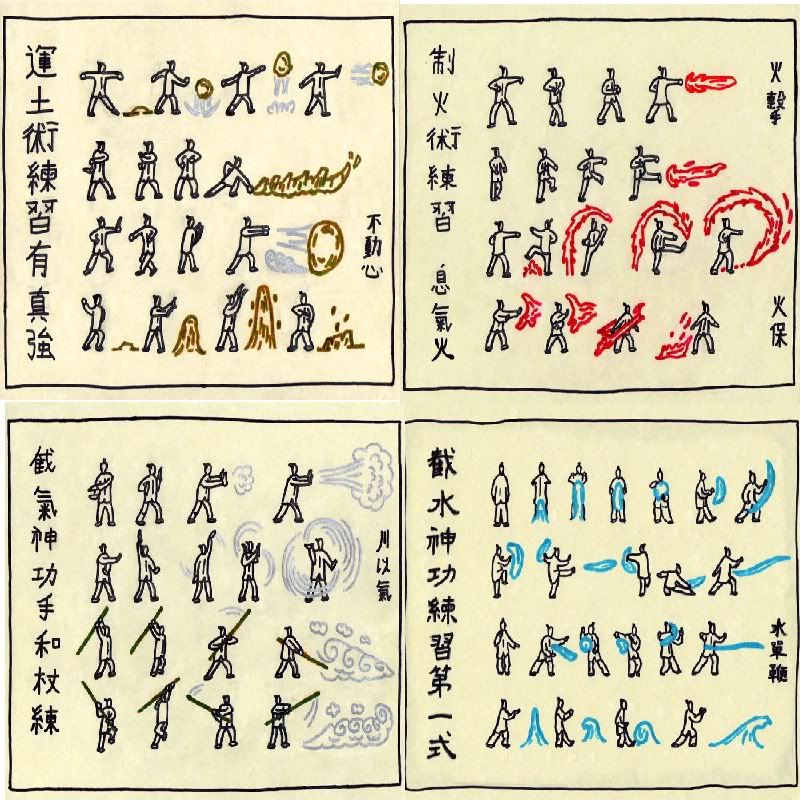 運土術練習有真強
不動心
制火術練習 息氣火
火擊
火保
截氣神功手和杖練
川以氣
截水神功練習第一式
水單鞭